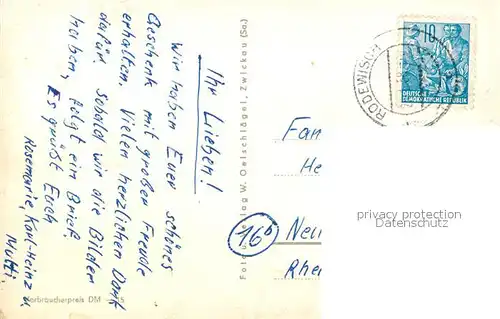 Ihr Lieben!
Wir haben Euer schönes
Geschenk mit großer Freude
erhalten. Vielen herzlichen Dank
dafür. Sobald wir die Bilder
haben, folgt ein Brief.
Es grüßt Euch
Rosemarie, Karl-Heinz u
Mutti.
Verbraucherpreis DM
W. Oetschlägel, Zwickau (Sa.)
RODEWISCH
10
5
DEUTSCHE
DEMOKRATISCHE REPUBLIK
Fam
He
16b
Neu
Rhe
privacy protection
Datenschutz